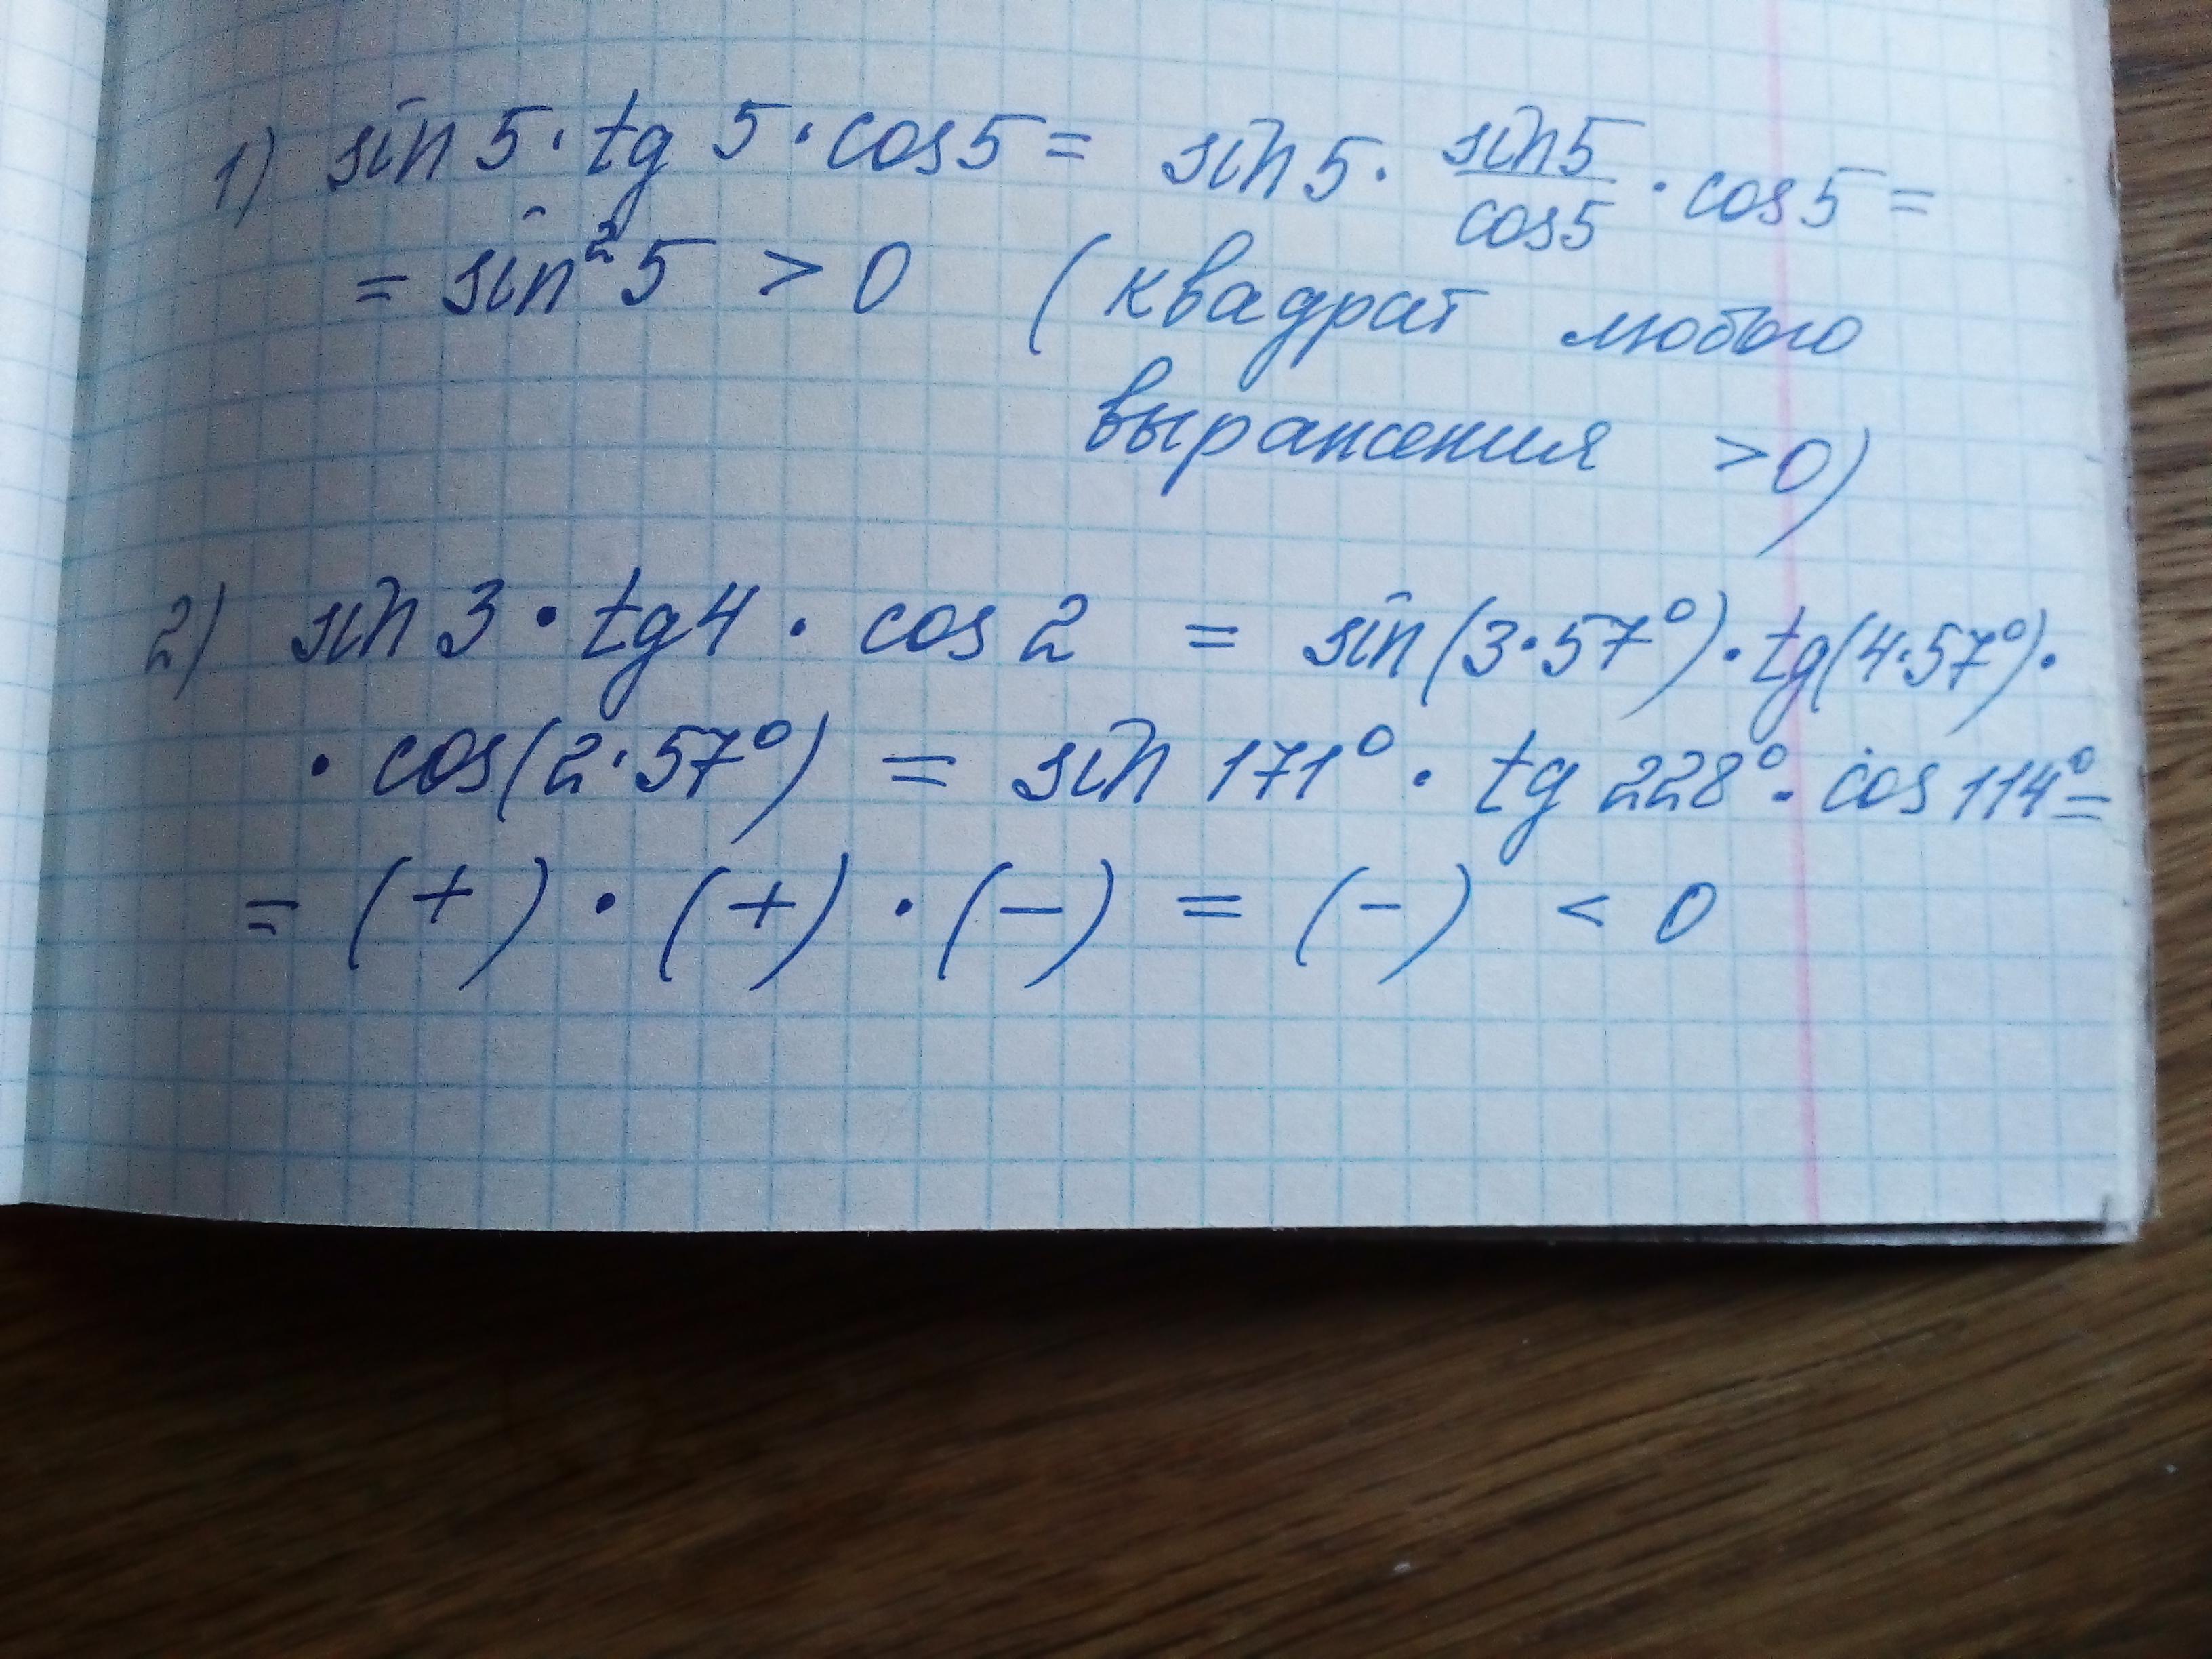 1) sin 5 · tg 5 · cos 5 = sin 5 · sin 5 / cos 5 · cos 5 =
= sin² 5 > 0 (квадрат любого
выражения > 0)
2) sin 3 · tg 4 · cos 2 = sin (3 · 57°) · tg (4 · 57°) ·
· cos (2 · 57°) = sin 171° · tg 228° · cos 114° =
= (+) · (+) · (−) = (−) < 0